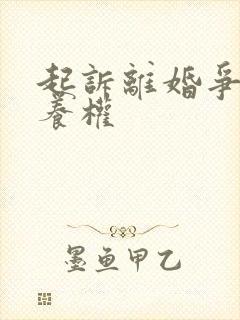 起訴離婚爭
養權
墨魚甲乙